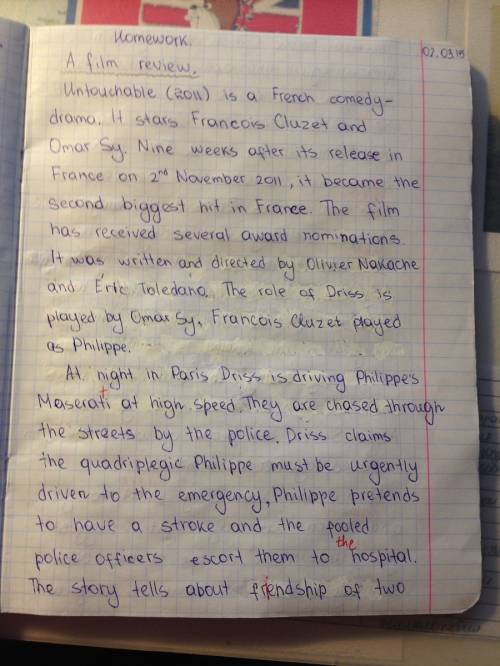 Homework.
02.03.15
A film review.
Untouchable (2011) is a French comedy-
drama. It stars Francois Cluzet and
Omar Sy. Nine weeks after its release in
France on 2nd November 2011, it became the
second biggest hit in France. The film
has received several award nominations.
It was written and directed by Olivier Nakache
and Éric Toledano. The role of Driss is
played by Omar Sy. Francois Cluzet played
as Philippe.
At night in Paris Driss is driving Philippe's
Maserati at high speed. They are chased through
the streets by the police. Driss claims
the quadriplegic Philippe must be urgently
driven to the emergency. Philippe pretends
to have a stroke and the fooled
police officers escort them to the hospital.
The story tells about friendship of two